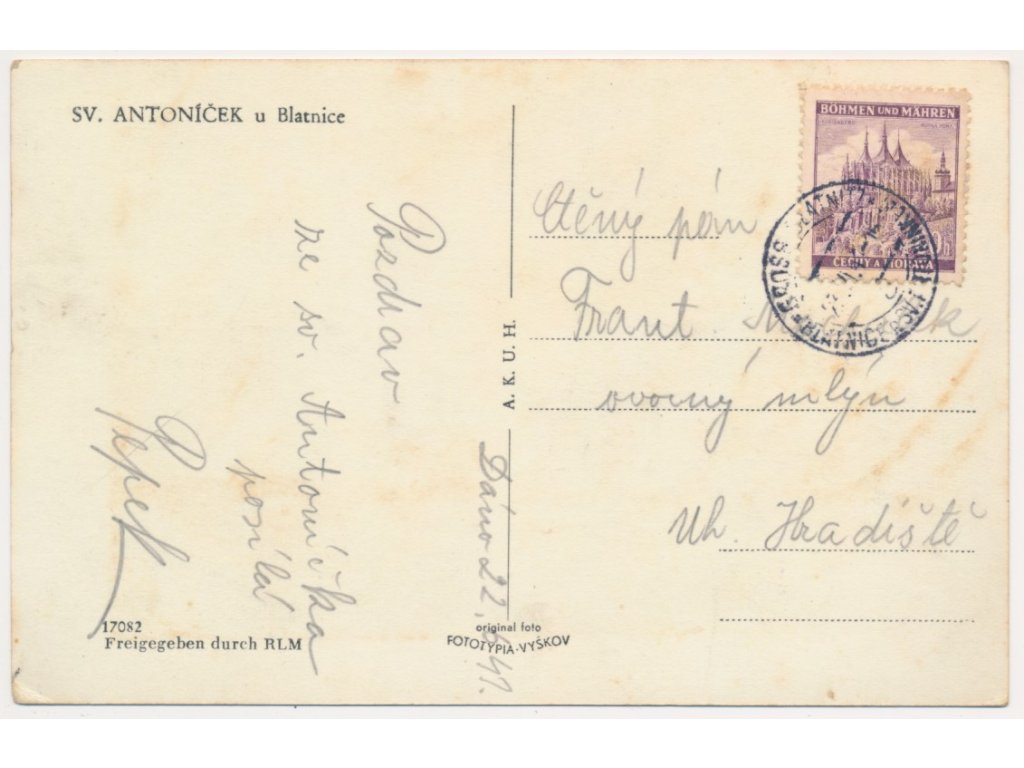 SV. ANTONÍČEK u Blatnice
Pozdrav
ze sv. Antoníčka
posílá
Pepek
Dáno 22. 6. 41.
17082
Freigegeben durch RLM
A. K. U. H.
original foto
FOTOTYPIA-VYŠKOV
BÖHMEN UND MÄHREN
ČECHY A MORAVA
Ctěný pán
Frant.
ovocný mlýn
Uh. Hradiště